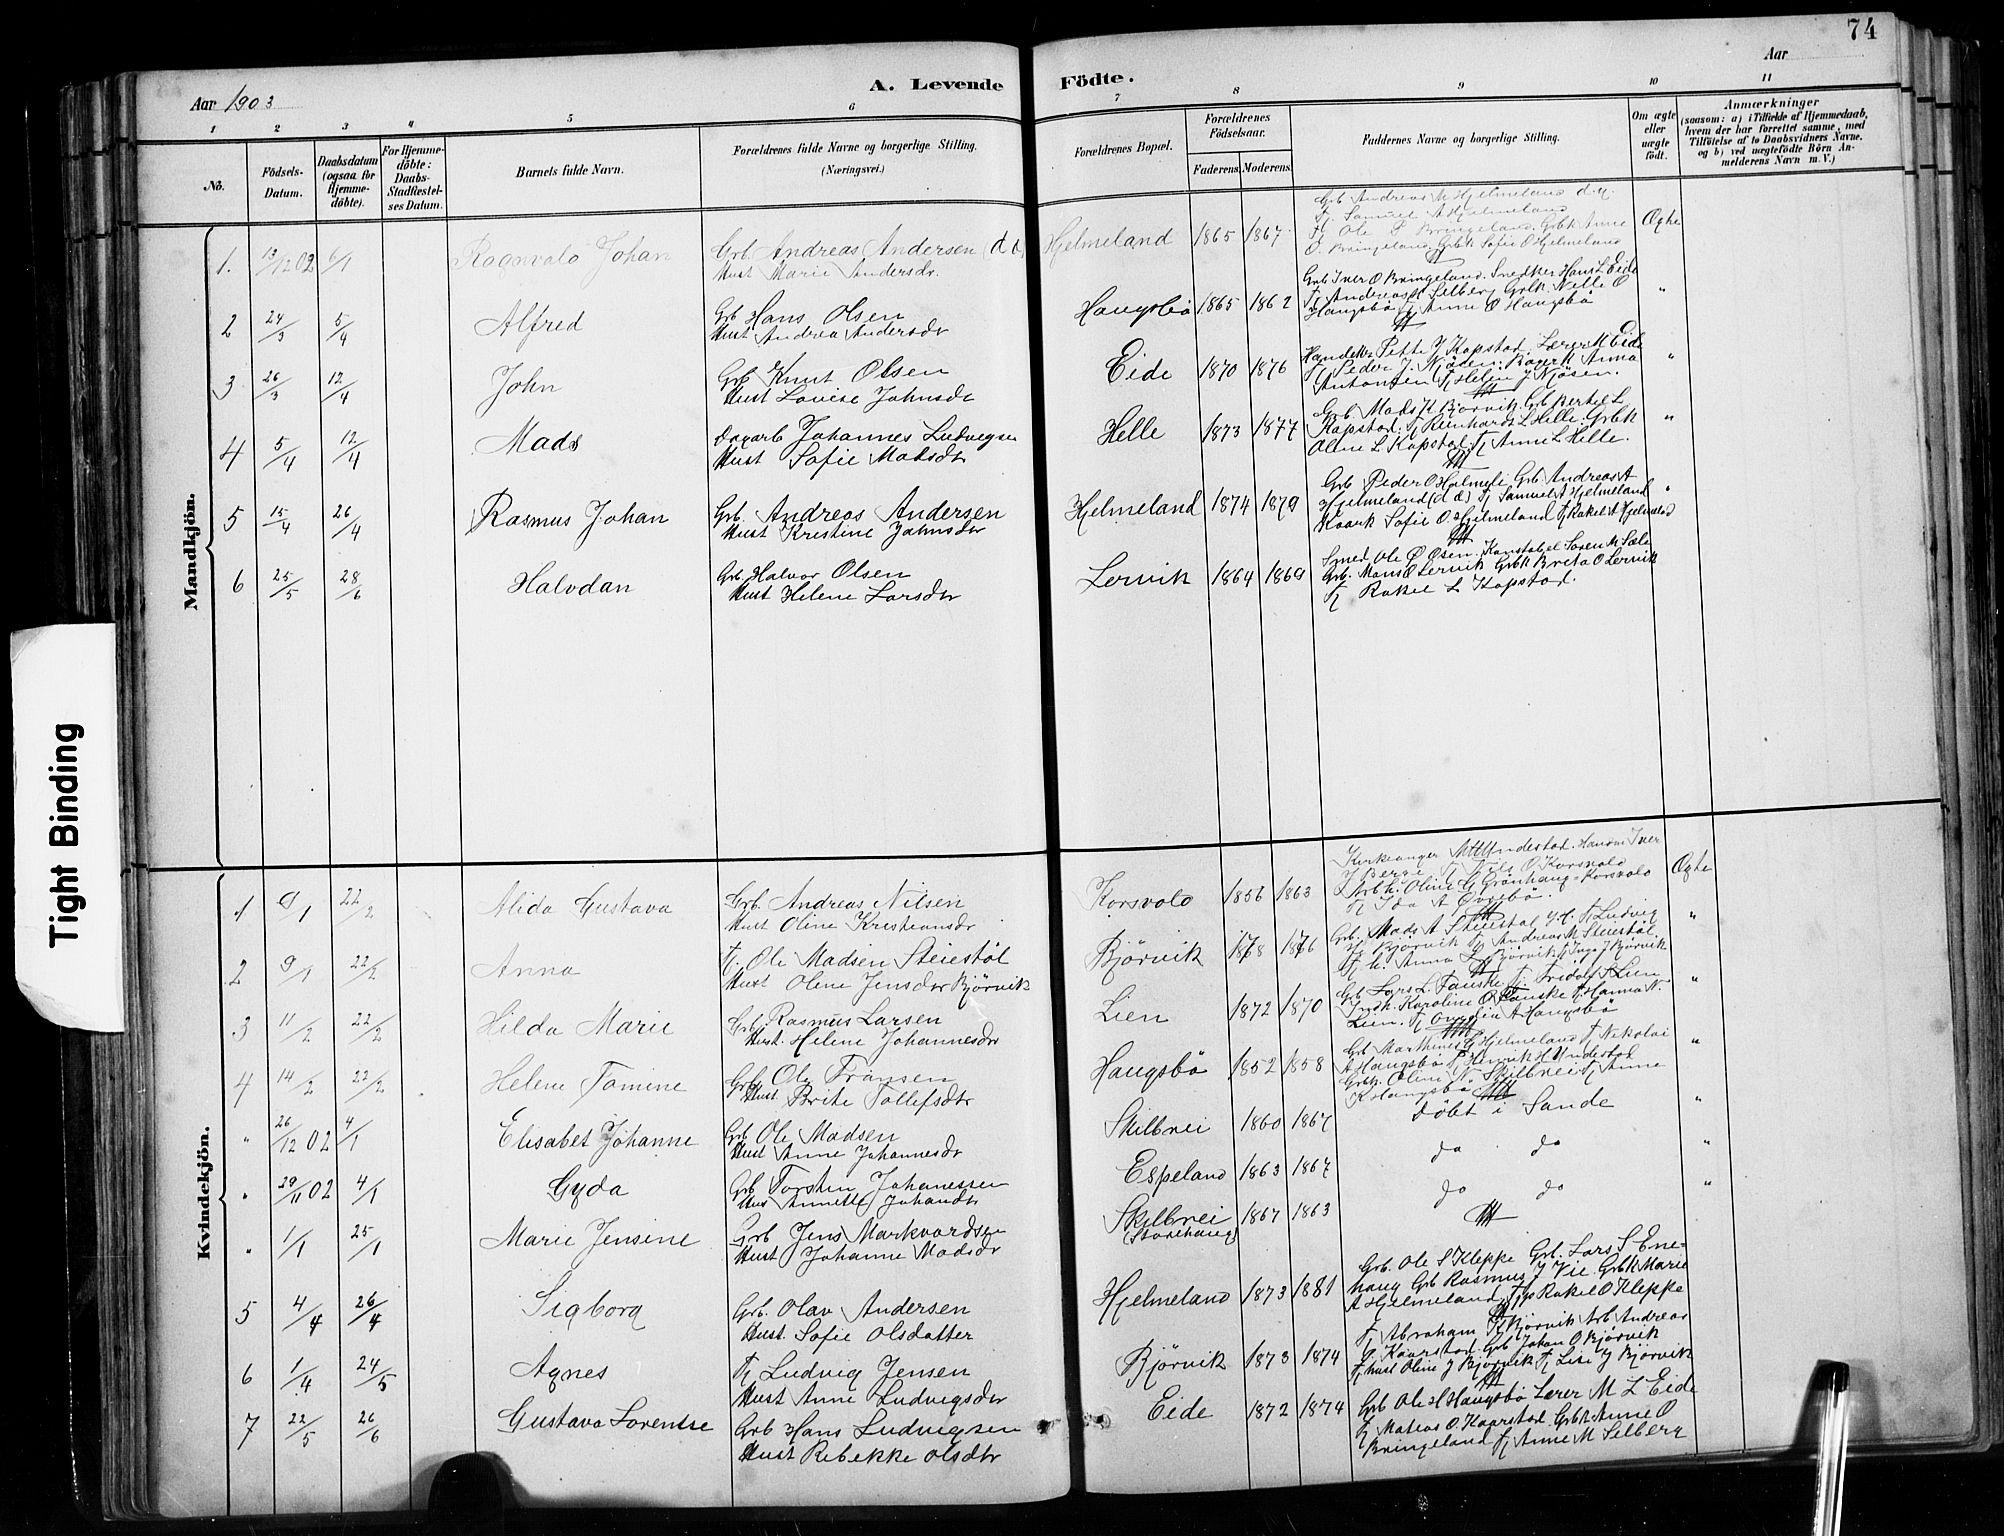 74
Aar 1903
A. Levende Födte.
Aar
1 2 3 4 5 6 7 8 9 10 11
No.
Födsels-Datum.
Daabsdatum (ogsaa for Hjemmedöbte).
For Hjemmedöbte: Daabs-Stadfæstelses Datum.
Barnets fulde Navn.
Forældrenes fulde Navne og borgerlige Stilling.
(Næringsvei.)
Forældrenes Bopæl.
Forældrenes Födselsaar.
Faderens. Moderens.
Faddernes Navne og borgerlige Stilling.
Om ægte eller uægte födt.
Anmærkninger
(saasom: a) i Tilfælde af Hjemmedaab, hvem der har forrettet samme, med Tilföielse af to Daabsvidners Navne. og b) ved uægtefödte Börn Anmelderens Navn m. V.)
Mandkjön.
1. 13/12 02 6/1 Ragnvald Johan Grb Andreas Andersen (d.æ) Hust Marie Andersdr. Hjelmeland 1865 1867 Grb Andreas M Hjelmeland d.y. Tj. Samuel A Hjelmeland Tj Ole P Bringeland. Grbk Anne O. Bringeland Grbk Sofie O Hjelmeland Ægte
2 24/3 5/4 Alfred Grb Hans Olsen Hust Andrea Andersdr Haugsbö 1865 1862 Grb Iver O Bringeland. Snedker Hans L Eide Tj Andreas A Selberg Grbk Nille O Haugsbö Tj Anne O Haugsbö "
3 26/3 12/4 John Grb Knut Olsen Hust Lovise Johnsdr Eide 1870 1876 Petter J Kapstad. Lærer M Eide Tj Peder J. Njösen. Anna Antonsen Tj Helen J Njösen. "
4 5/4 12/4 Mads Dagarb Johannes Ludvigsen Hust Sofie Madsdr Helle 1873 1877 Grb Mads H Bjorvik. Grb Bertel L Kapstad. Tj Reinhardt L Helle. Grbk Oline L Kapstad. Tj Anne L Helle. "
5 15/4 26/4 Rasmus Johan Grb. Andreas Andersen Hust Kristine Johnsdr Hjelmeland 1874 1879 Grb Peder O Grb Andreas A Hjelmeland (d æ) Tj Samuel A Hjelmeland Sofie O Hjelmeland Tj Rakel A Hjelmeland "
6 25/5 28/6 Halvdan Grb Halvor Olsen Hust Helene Larsdr Lervik 1864 1869 Smed Ole O Osen. Konstabel Soren M Sæle Grb. Mons O Lervik Grbk Brita O Lervik Tj Rakel L Kapstad.
Kvindekjön.
1 9/1 22/2 Alida Gustava Grb. Andreas Nilsen Hust Oline Kristiansdr Korsvold 1856 1863 Kirkesanger Undestad. Iver J Berge. Tj Nils O Korsvold Grbk. Oline G Grönhaug-Korsvold Tj Ida A Ægte
2 9/1 22/2 Anna Tj. Ole Madsen Steiestöl Hust Oline Jensdr Bjørvik Bjørvik 1878 1876 Grb. Mads A Steiestöl Tj Ludvig Bjørvik Tj Andreas M Steiestöl. Anna Bjørvik Tj Inga J Bjørvik "
3 11/2 22/2 Hilda Marie Grb. Rasmus Larsen Hust. Helene Johannesdr Lien 1872 1870 Grb Lars L. Fauske Tj. Fredolf S Lien Karoline O Fauske Tj Hanna N. Lien. Tj A Haugsbö "
4 14/2 22/2 Helene Tomine Grb Ole Fransen Hust Brite Tollefsdtr Haugsbö 1852 1858 Grb Marthinus G Hjelmeland Tj Nikolai A Haugsbö Tj Henrik H Undestad Grbk. Oline N Skilbrei Tj Anne K Haugsbö "
" 26/12 02 4/1 Elisabet Johanne Grb Ole Madsen Hust Anne Johannesdr Skilbrei 1860 1867 Döbt i Sande "
" 29/11 02 4/1 Gyda Grb Torsten Johanessen Hus Annette Johandtr Espeland 1863 1867 do do "
" 1/1 25/1 Marie Jensine Grb Jens Markvardsen Hust Johanne Madsdr Skilbrei (Storehaug) 1867 1863 do do "
5 4/4 26/4 Sigborg Grb. Olav Andersen Hust. Sofie Olsdatter Hjelmeland 1873 1881 Grb. Ole S Kleppe Grb. Lars S Enehaug Grb Rasmus J Vie. Grbk Marie A Hjelmeland. Rakel O Kleppe
6 1/4 24/5 Agnes Tj Ludvig Jensen Hust Anne Ludvigsdr Bjørvik 1873 1874 Tj Abraham Bjørvik Arb Andreas Kaarstad. Grb Johan O Bjørvik Tj hust Oline J Bjørvik Tj Lise J Bjørvik
7 22/5 26/6 Gustava Lorentse Grb Hans Ludvigsen Hust Rebekke Olsdtr Eide 1872 1874 Grb Ole H Haugsbö Lærer M L Eide Tj Matias O Kaarstad. Grbk Anne O Bringeland Tj Anne M Selberg
Tight Binding